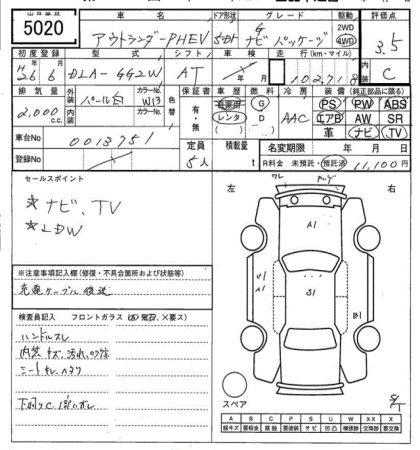 出品番号 車名 ドア形状 グレード 駆動 評価点
5020 アウトランダーPHEV 5dr G ナビパッケージ 2WD 4WD 3.5
初度登録 型式 シフト 車検 走行(km・マイル) 内装
H26 6 DLA-GG2W AT 年 月 102,718 C
排気量 外装 カラーNo. 色替 保証書 車歴 燃料 冷房 装備(純正部品に限る)
2,000 c.c. パール白 W13 有・無 自家用 G AAC PS PW ABS
内装 カラーNo. レンタ D エアB AW SR
( ) 革 ナビ TV
車台No 0013751 定員 積載量 名変期限 年 月 日
登録No 5人 R料金 未預託・預託済 11,100円
セールスポイント
☆ナビ、TV
☆LDW
左 右
A1
U1
A1
B1
B1
※注意事項記入欄(修復・不具合箇所および状態等)
充電ケーブル後送
検査員記入 フロントガラス
ハンドルスレ
内装キズ、汚れ
シート
下回りC
スペア
A B C P S U W X XX
線キズ 要板金 腐蝕 要塗装 サビ 凹凸 補修跡 交換跡 要交換